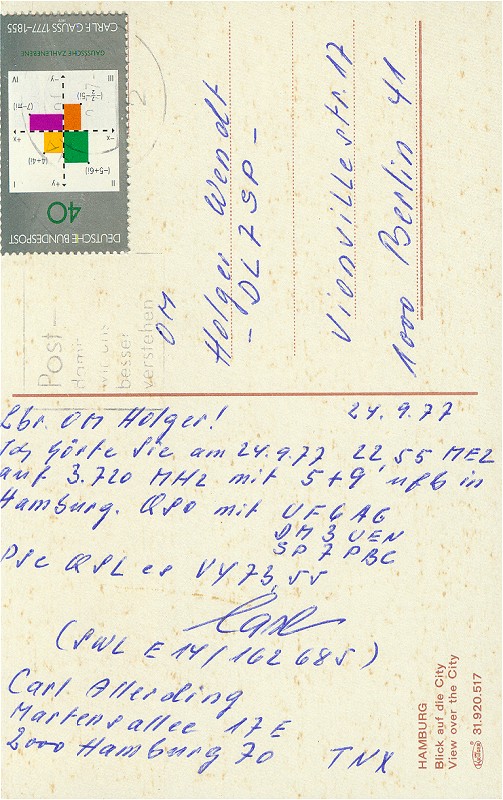 CARL F. GAUSS 1777-1855
GAUSSSCHE ZAHLENEBENE
IV
-y
III
(7-πi)
+x
-x
(4+4i)
(-5+6i)
I
+y
II
40
DEUTSCHE BUNDESPOST
Post-
damit
wir uns
besser
verstehen
OM
Holger Wendt
- DL7SP -
Vionvillestr. 17
1000 Berlin 41
24.9.77
Lbr OM Holger!
Ich hörte Sie am 24.9.77 22,55 MEZ
auf 3.720 MHz mit 5+9 ufb in
Hamburg. QSO mit UF6AG
DM3UEN
SP7PBC
PSE QSL es VY 73,55
Carl
(SWL E14/162685)
Carl Allerding
Martensallee 17E
2000 Hamburg 70
TNX
HAMBURG
Blick auf die City
View over the City
31.920.517